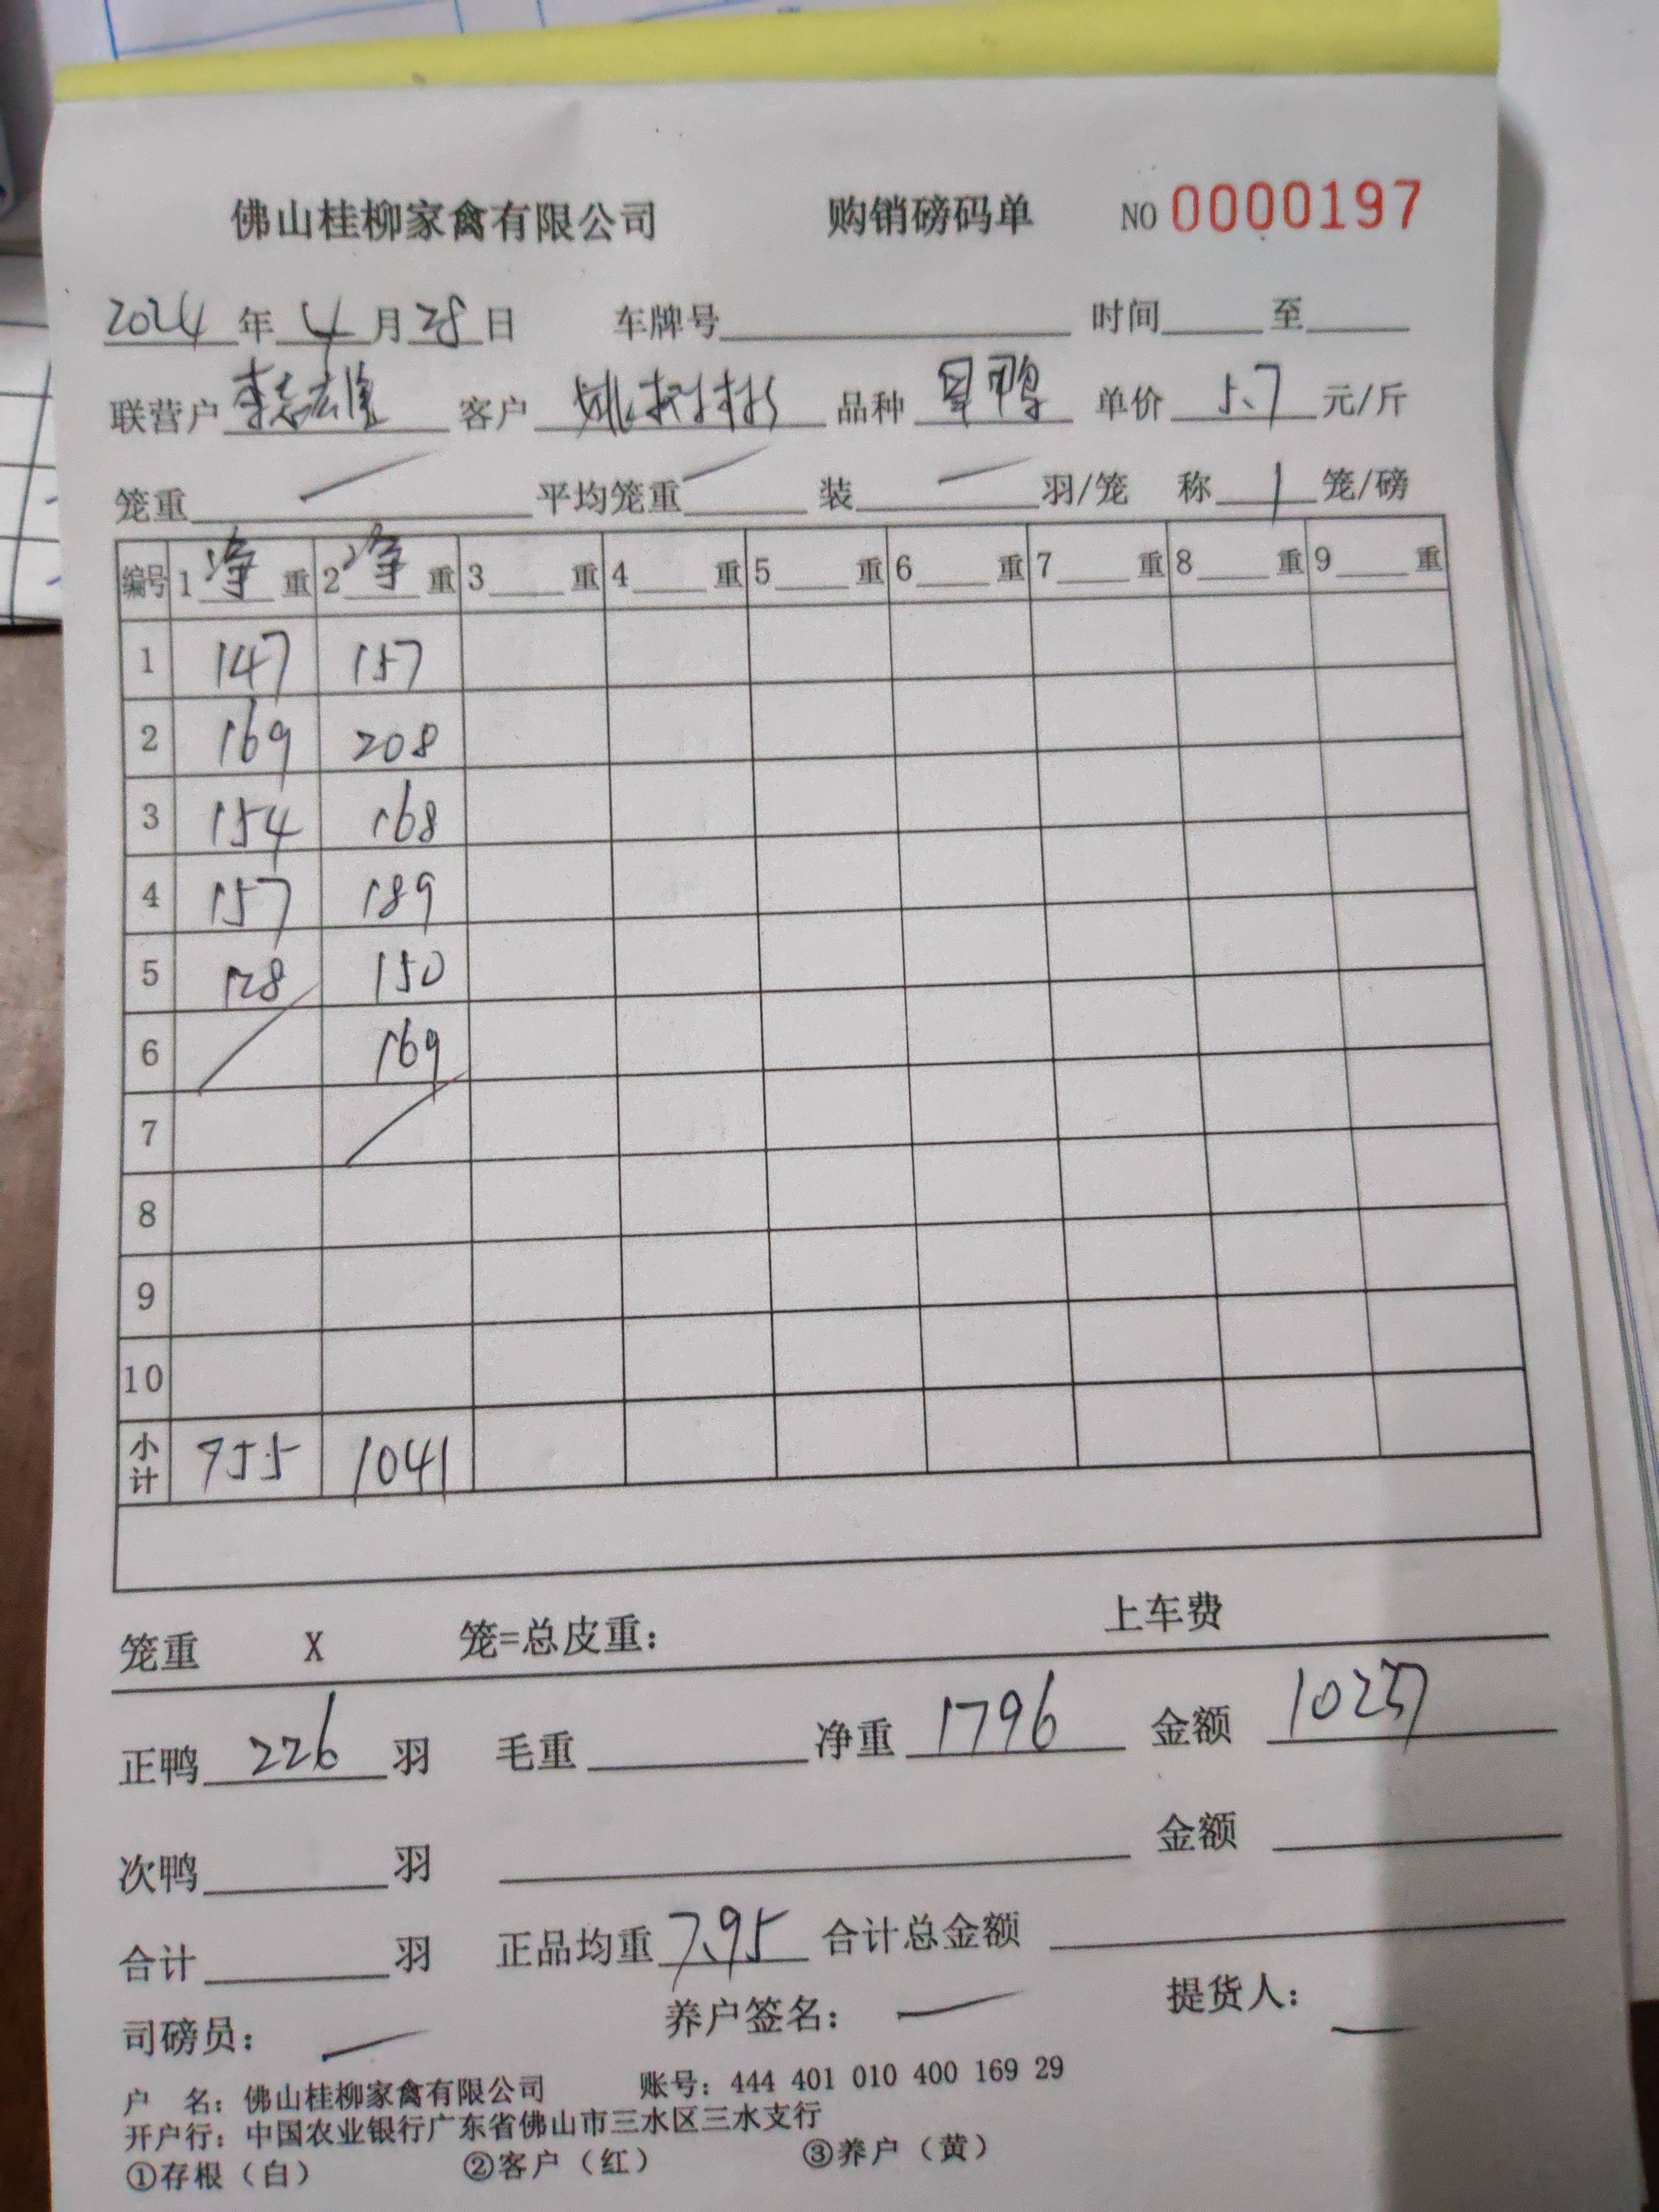 佛山桂柳家禽有限公司 购销磅码单 NO 0000197
2024 年 4 月 28 日 车牌号 时间 至
联营户 李志雄 客户 姚树彬 品种 鸭 单价 5.7 元/斤
笼重 平均笼重 装 羽/笼 称 1 笼/磅
编号 1 净 重 2 净 重 3 重 4 重 5 重 6 重 7 重 8 重 9 重
1 147 157
2 169 208
3 154 168
4 157 189
5 128 150
6 169
7
8
9
10
小计 755 1041
笼重 X 笼=总皮重: 上车费
正鸭 226 羽 毛重 净重 1796 金额 10237
次鸭 羽 金额
合计 羽 正品均重 7.95 合计总金额
司磅员: 养户签名: 提货人:
户 名: 佛山桂柳家禽有限公司 账号: 444 401 010 400 169 29
开户行: 中国农业银行广东省佛山市三水区三水支行
①存根（白） ②客户（红） ③养户（黄）